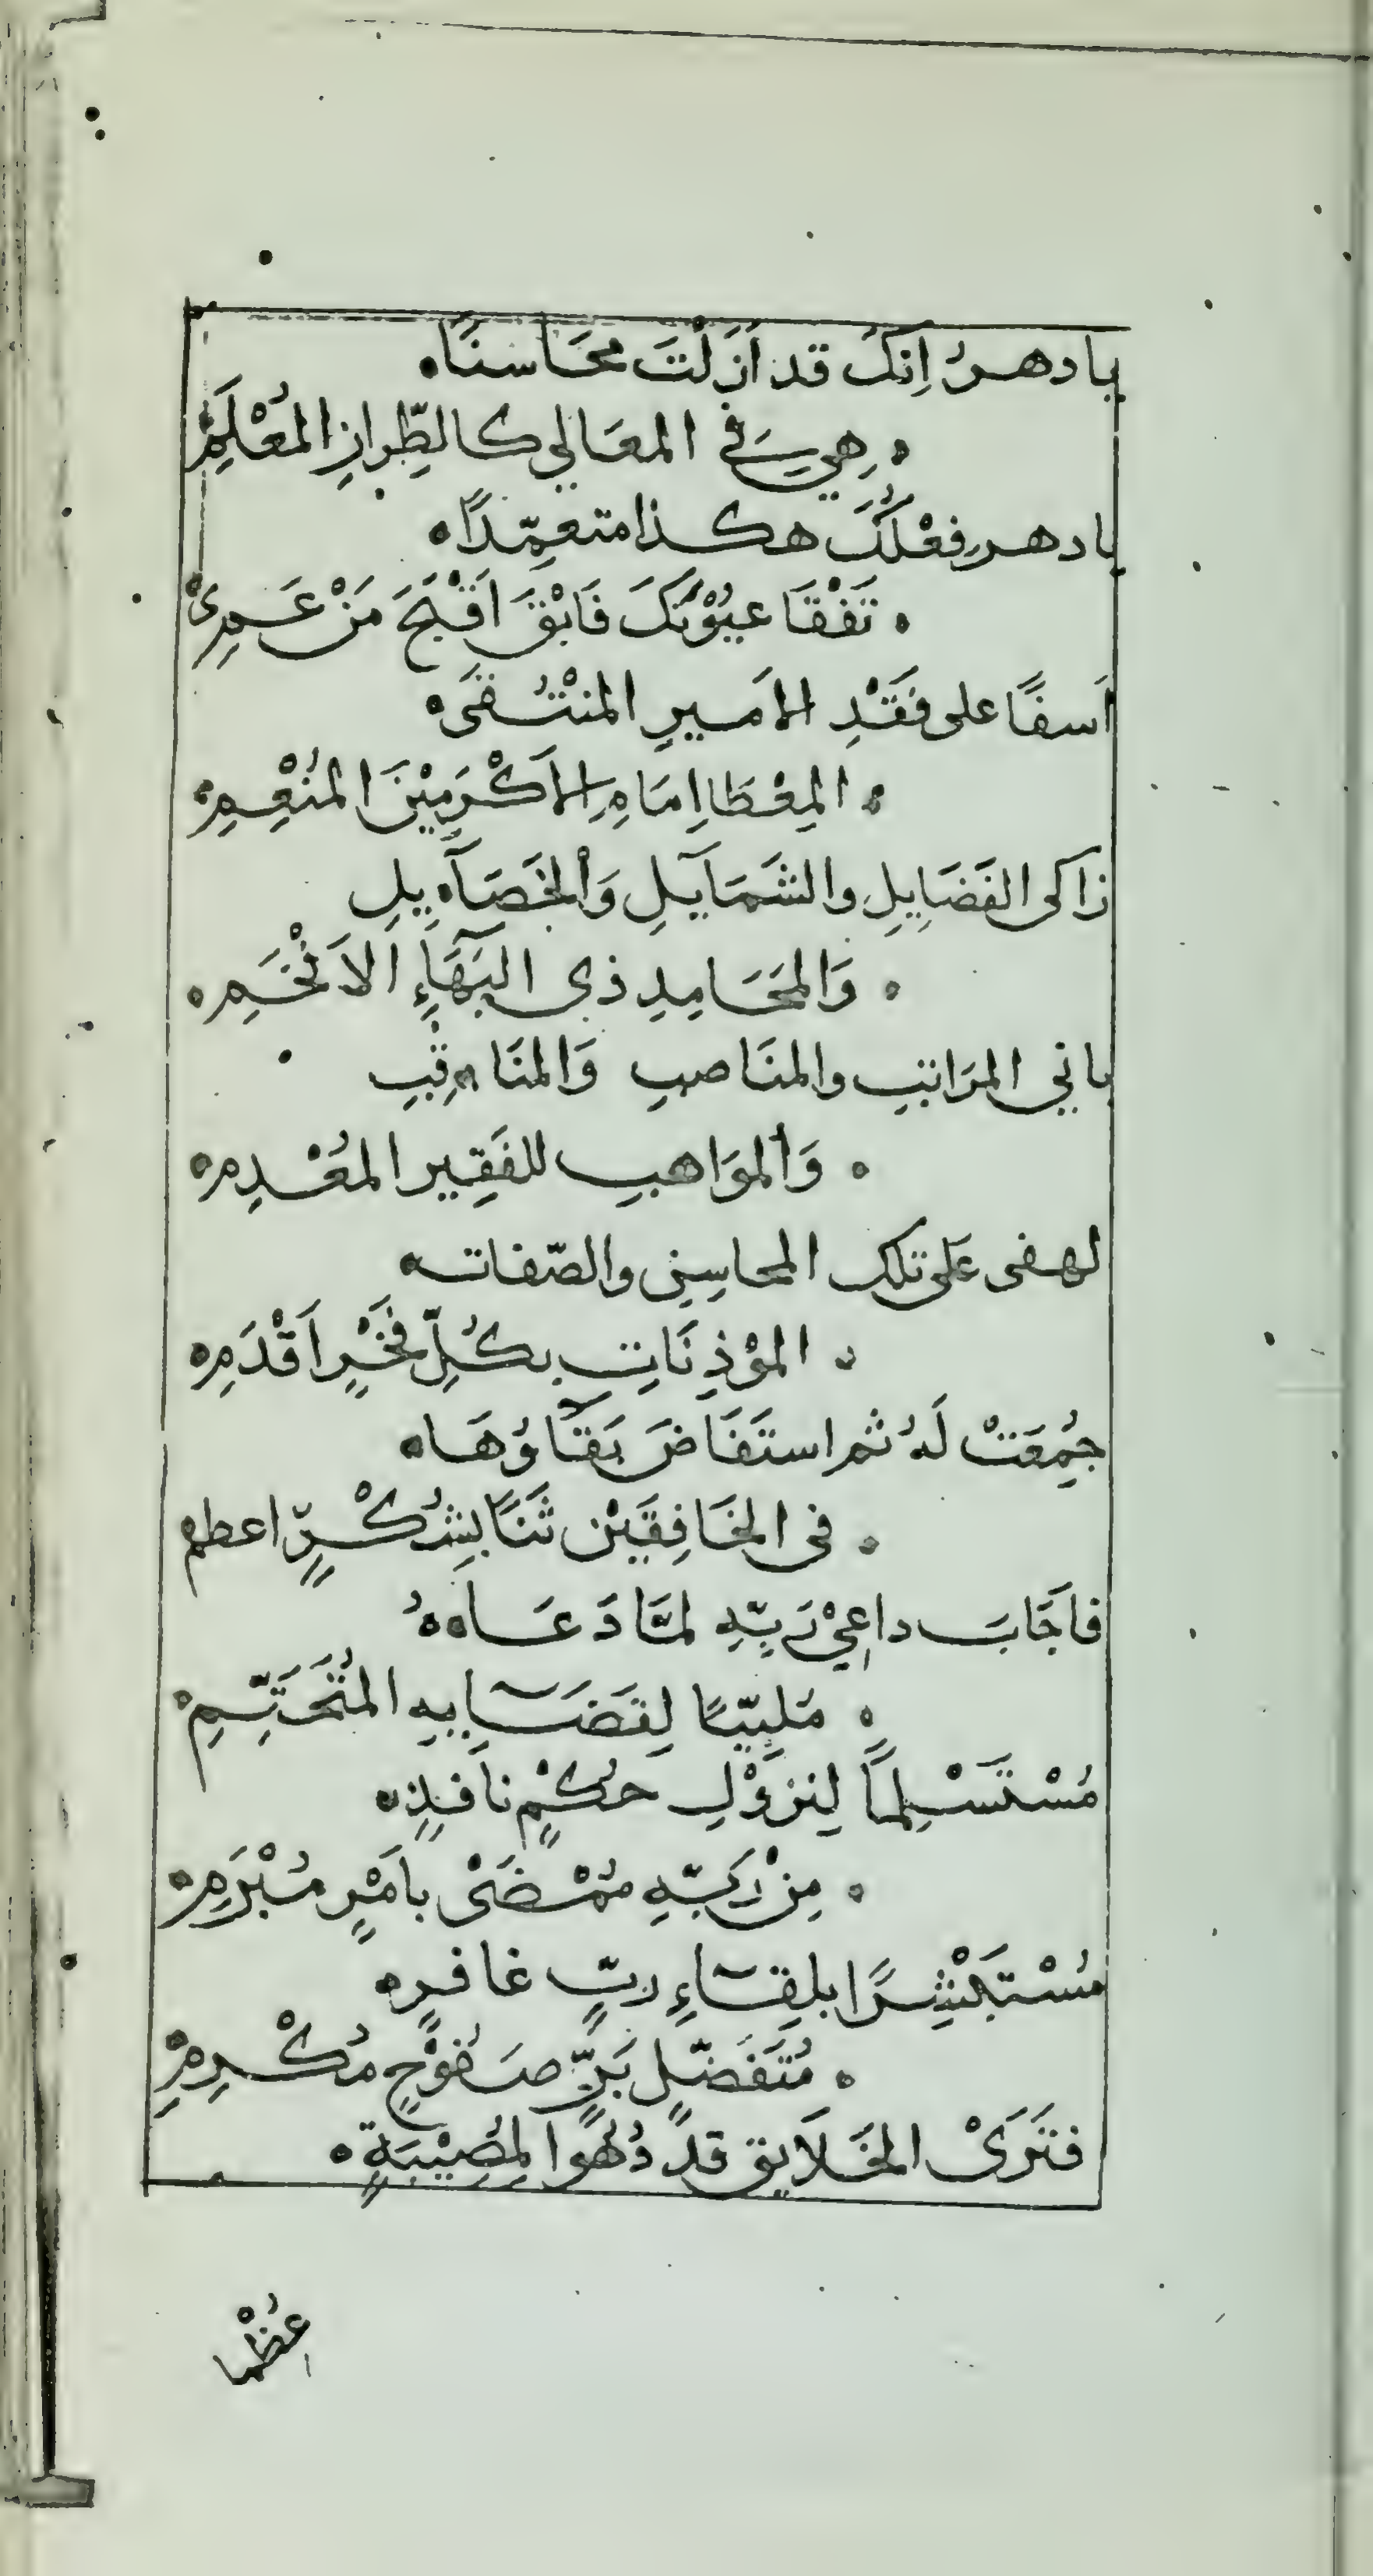 يا دهرُ اِنكَ قد اَزَلْتَ محَاسنًا ه
ه هِيَ في المعَالي كالطِّرازِ المُعْلَمِ
يا دهر فعْلُكَ هكذا متعمِّدًا ه
ه تَفْقَا عيُوْنَكَ فَابْقَ اَقْبَحَ مَنْ عَمِىْ
اَسفًا على فَقْدِ الاَميرِ المنْتُقىَ ه
ه المِعْطَا اِمَامِ الاَكْرَمِيْنَ المُنْعِمِ ه
زاكى الفَضَايِلِ والشَمَآيلِ وَالخَصَآيِلِ
ه وَالمَحَامِدِ ذى البَهَآءِ الاَفْخَمِ ه
بانِي المرَاتبِ والمنَاصبِ وَالمنَاقِبِ
ه وَالموَاهبِ للفَقِير المُعْدِمِ ه
لهفى عَلى تلك المحاسِنِ والصّفات ه
ه المؤْذِنَاتِ بكُلِّ فَخْرٍ اَقْدَمِ ه
جُمِعَتْ لَهُ ثم استَفَاضَ بَقَآؤُهَا ه
ه فى الخَافِقَيْن ثَنًا بِشُكْرٍ اعظم
فاَجَابَ داعِيْ رَبِّهِ لمَّا دَعَاهُ
ه مُلبِّيًا لِقضَآيهِ المُتَحَتِّمِ ه
مُسْتَسْلِمًا لِنزوْلِ حُكْمٍ نافذٍ ه
ه مِنْ رَبِّهِ مُمْضَىْ باَمْرٍ مُبْرَمِ ه
مُسْتَبْشِرًا بلِقآءِ ربٍّ غافرٍ ه
ه مُتَفَضّلٍ بَرٍّ صَفُوْحٍ مُكْرِمِ
فتَرَىْ الخَلَايق قد دُهُوا لمِصُيْبَةٍ ه
عُظْما